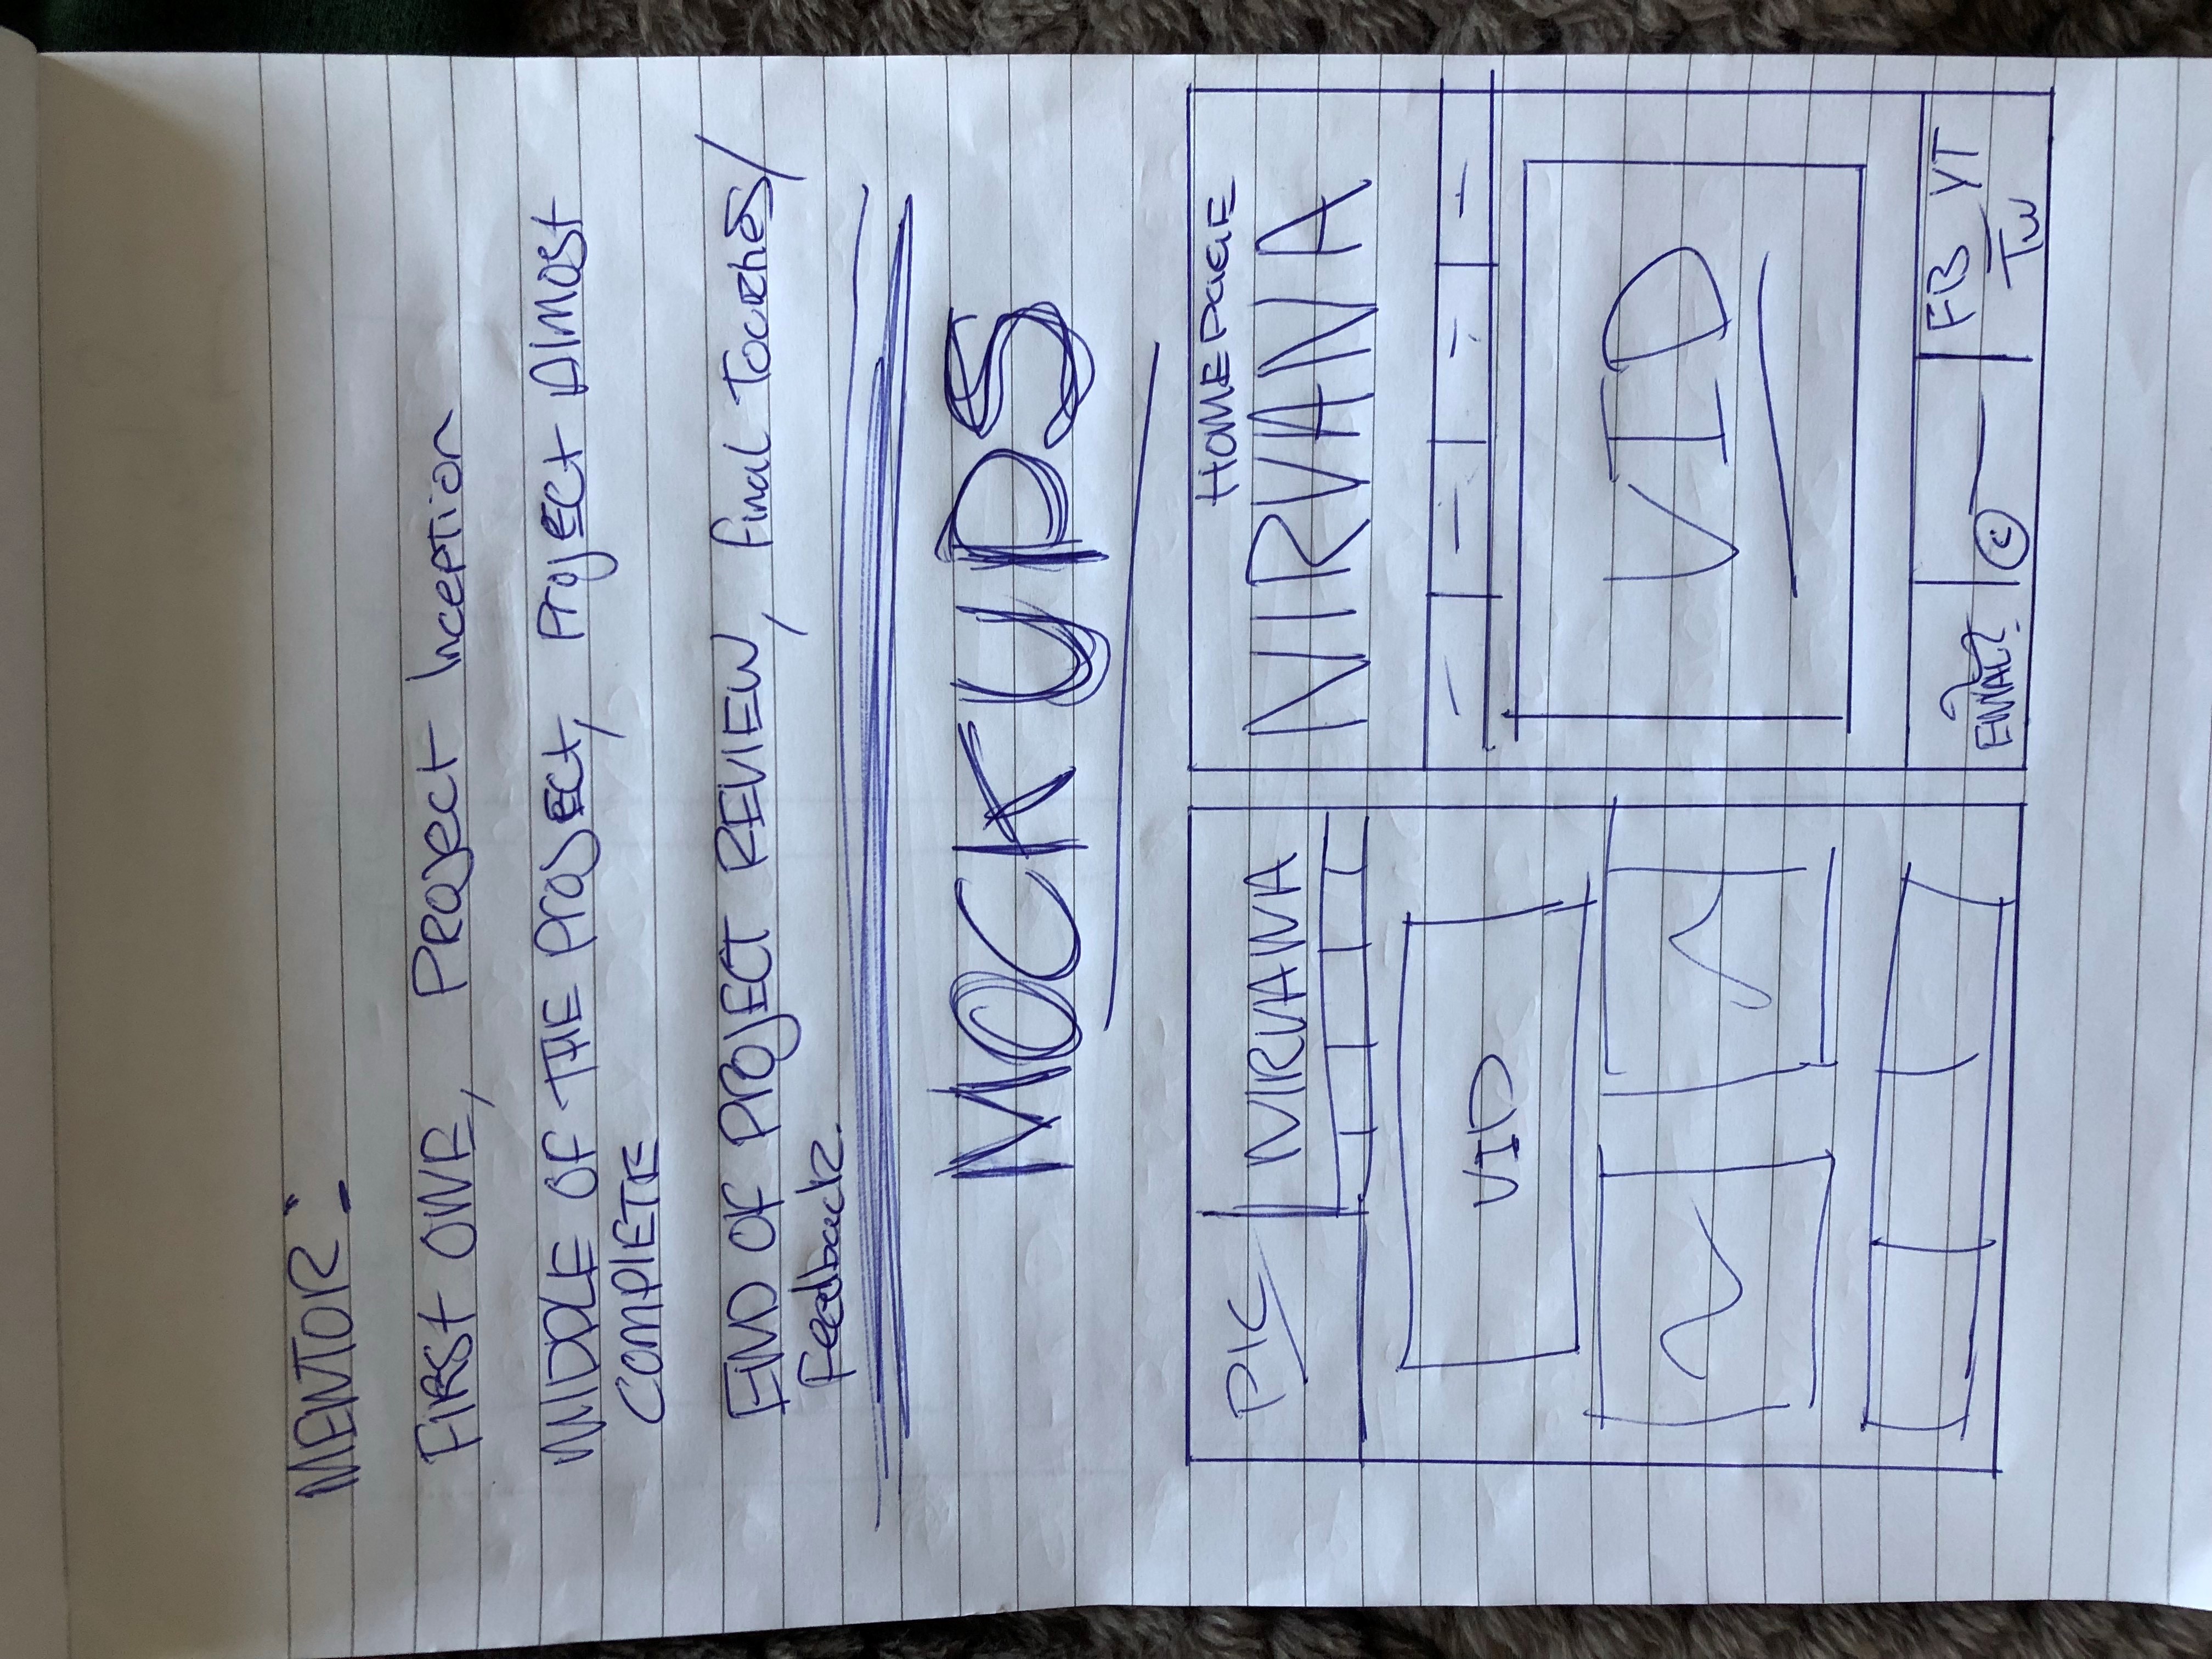 MENTOR:
First ONE, Project Inception
MIDDLE OF THE Project, Project Almost
COMPLETE
END OF PROJECT REVIEW, final Touches/
feedback.
MOCKUPS
PIC
NIRVANA
VID
HOMEPAGE
NIRVANA
VID
EMAIL?
©
FB YT
TW